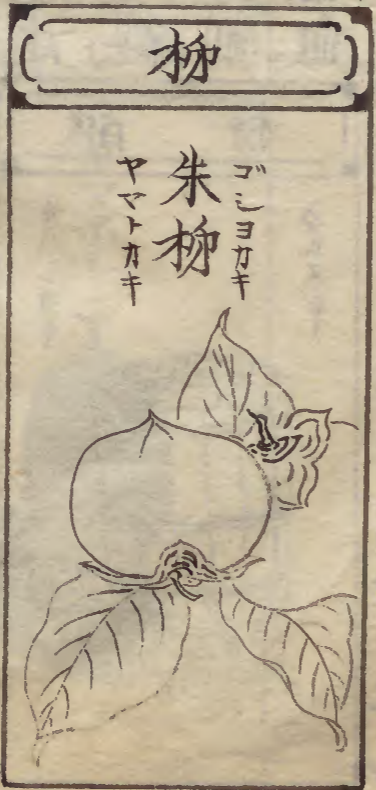 柹
ゴシヨカキ
朱柹
ヤマトカキ